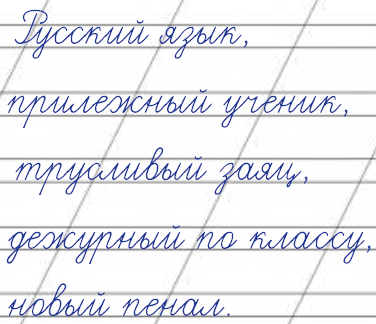 Русский язык,
прилежный ученик,
трусливый заяц,
дежурный по классу,
новый пенал.